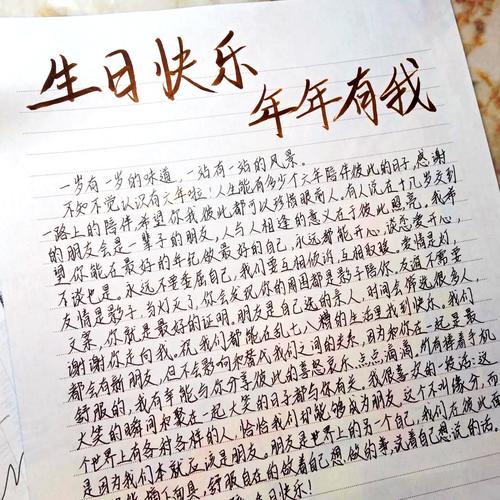 生日快乐
年年有我
一岁有一岁的味道，一站有一站的风景。
不知不觉认识有六年啦！人生能有多少个六年陪伴彼此的日子，感谢
一路上的陪伴，希望你我彼此都可以珍惜眼前人。有人说，在十几岁交到
的朋友会是一辈子的朋友，人与人相逢的意义在于彼此照亮。我希
望你能在最好的年纪做最好的自己，永远都能开心，谈恋爱开心，
不谈也是。永远不要委屈自己，我们要互相倾诉，互相取暖，爱情是灯，
友情是影子，当灯灭了，你会发现你的周围都是影子陪你，友谊不需要
文案，你就是最好的证明。朋友是自己选的亲人，时间会筛选很多人，
谢谢你走向我。祝我们都能在乱七八糟的生活里找到快乐。我们
都会有新朋友，但不会影响和替代我们之间的关系，因为和你在一起是最
舒服的，我有幸能与你分享彼此的喜怒哀乐，点点滴滴。所有捧着手机
大笑的瞬间和聚在一起大笑的日子都与你有关。我很喜欢的一段话：这
个世界上有各种各样的人，恰恰我们却能够成为朋友，这个不叫缘分，而
是因为我们本就应该是朋友。朋友是世界上的另一个自己，我们在彼此面
前，舒服自在的做着自己想做的事，说着自己想说的话。
生日快乐！